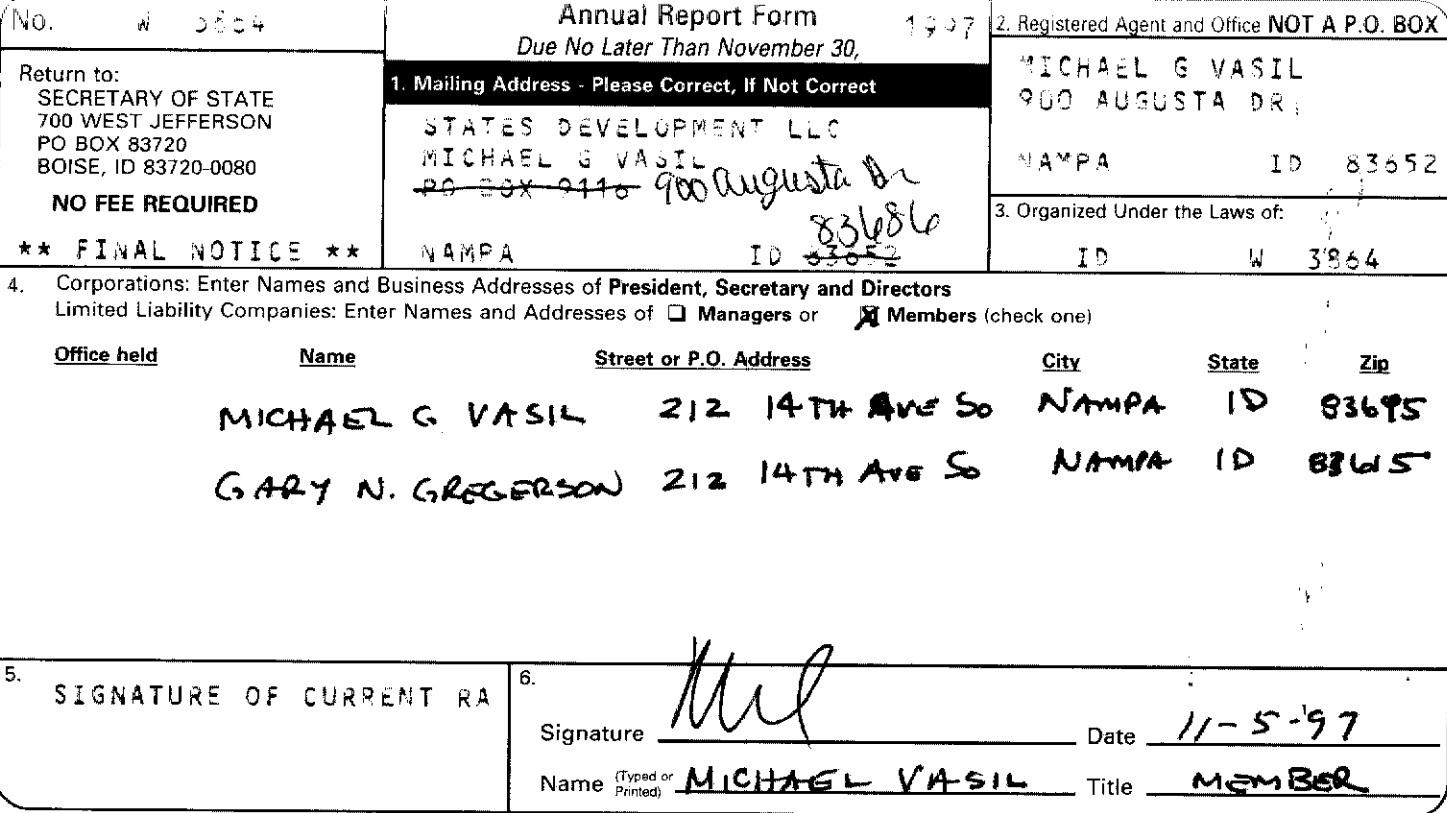 No. W 3864
Annual Report Form 1997
Due No Later Than November 30,
Return to:
SECRETARY OF STATE
700 WEST JEFFERSON
PO BOX 83720
BOISE, ID 83720-0080
NO FEE REQUIRED
** FINAL NOTICE **
1. Mailing Address - Please Correct, If Not Correct
STATES DEVELOPMENT LLC
MICHAEL G VASIL
PO BOX 9116 900 Augusta Dr
83686
NAMPA ID 83652
2. Registered Agent and Office NOT A P.O. BOX
MICHAEL G VASIL
900 AUGUSTA DR.
NAMPA ID 83652
3. Organized Under the Laws of:
ID W 3864
4. Corporations: Enter Names and Business Addresses of President, Secretary and Directors
Limited Liability Companies: Enter Names and Addresses of ☐ Managers or ☒ Members (check one)
Office held Name Street or P.O. Address City State Zip
MICHAEL G VASIL 212 14TH AVE So NAMPA ID
GARY N. GREGERSON 212 14TH AVE So NAMPA ID
5. SIGNATURE OF CURRENT RA
6.
Signature Date 11-5-97
Name (Typed or Printed) MICHAEL VASIL Title MEMBER